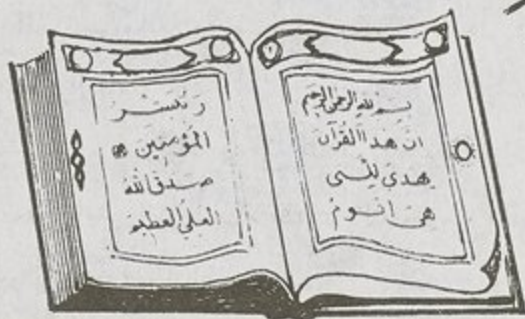 بسم الله الرحمن الرحيم
ان هذا القرآن
يهدي للتى
هي اقوم
و يبشر
المؤمنين
صدق الله
العلي العظيم